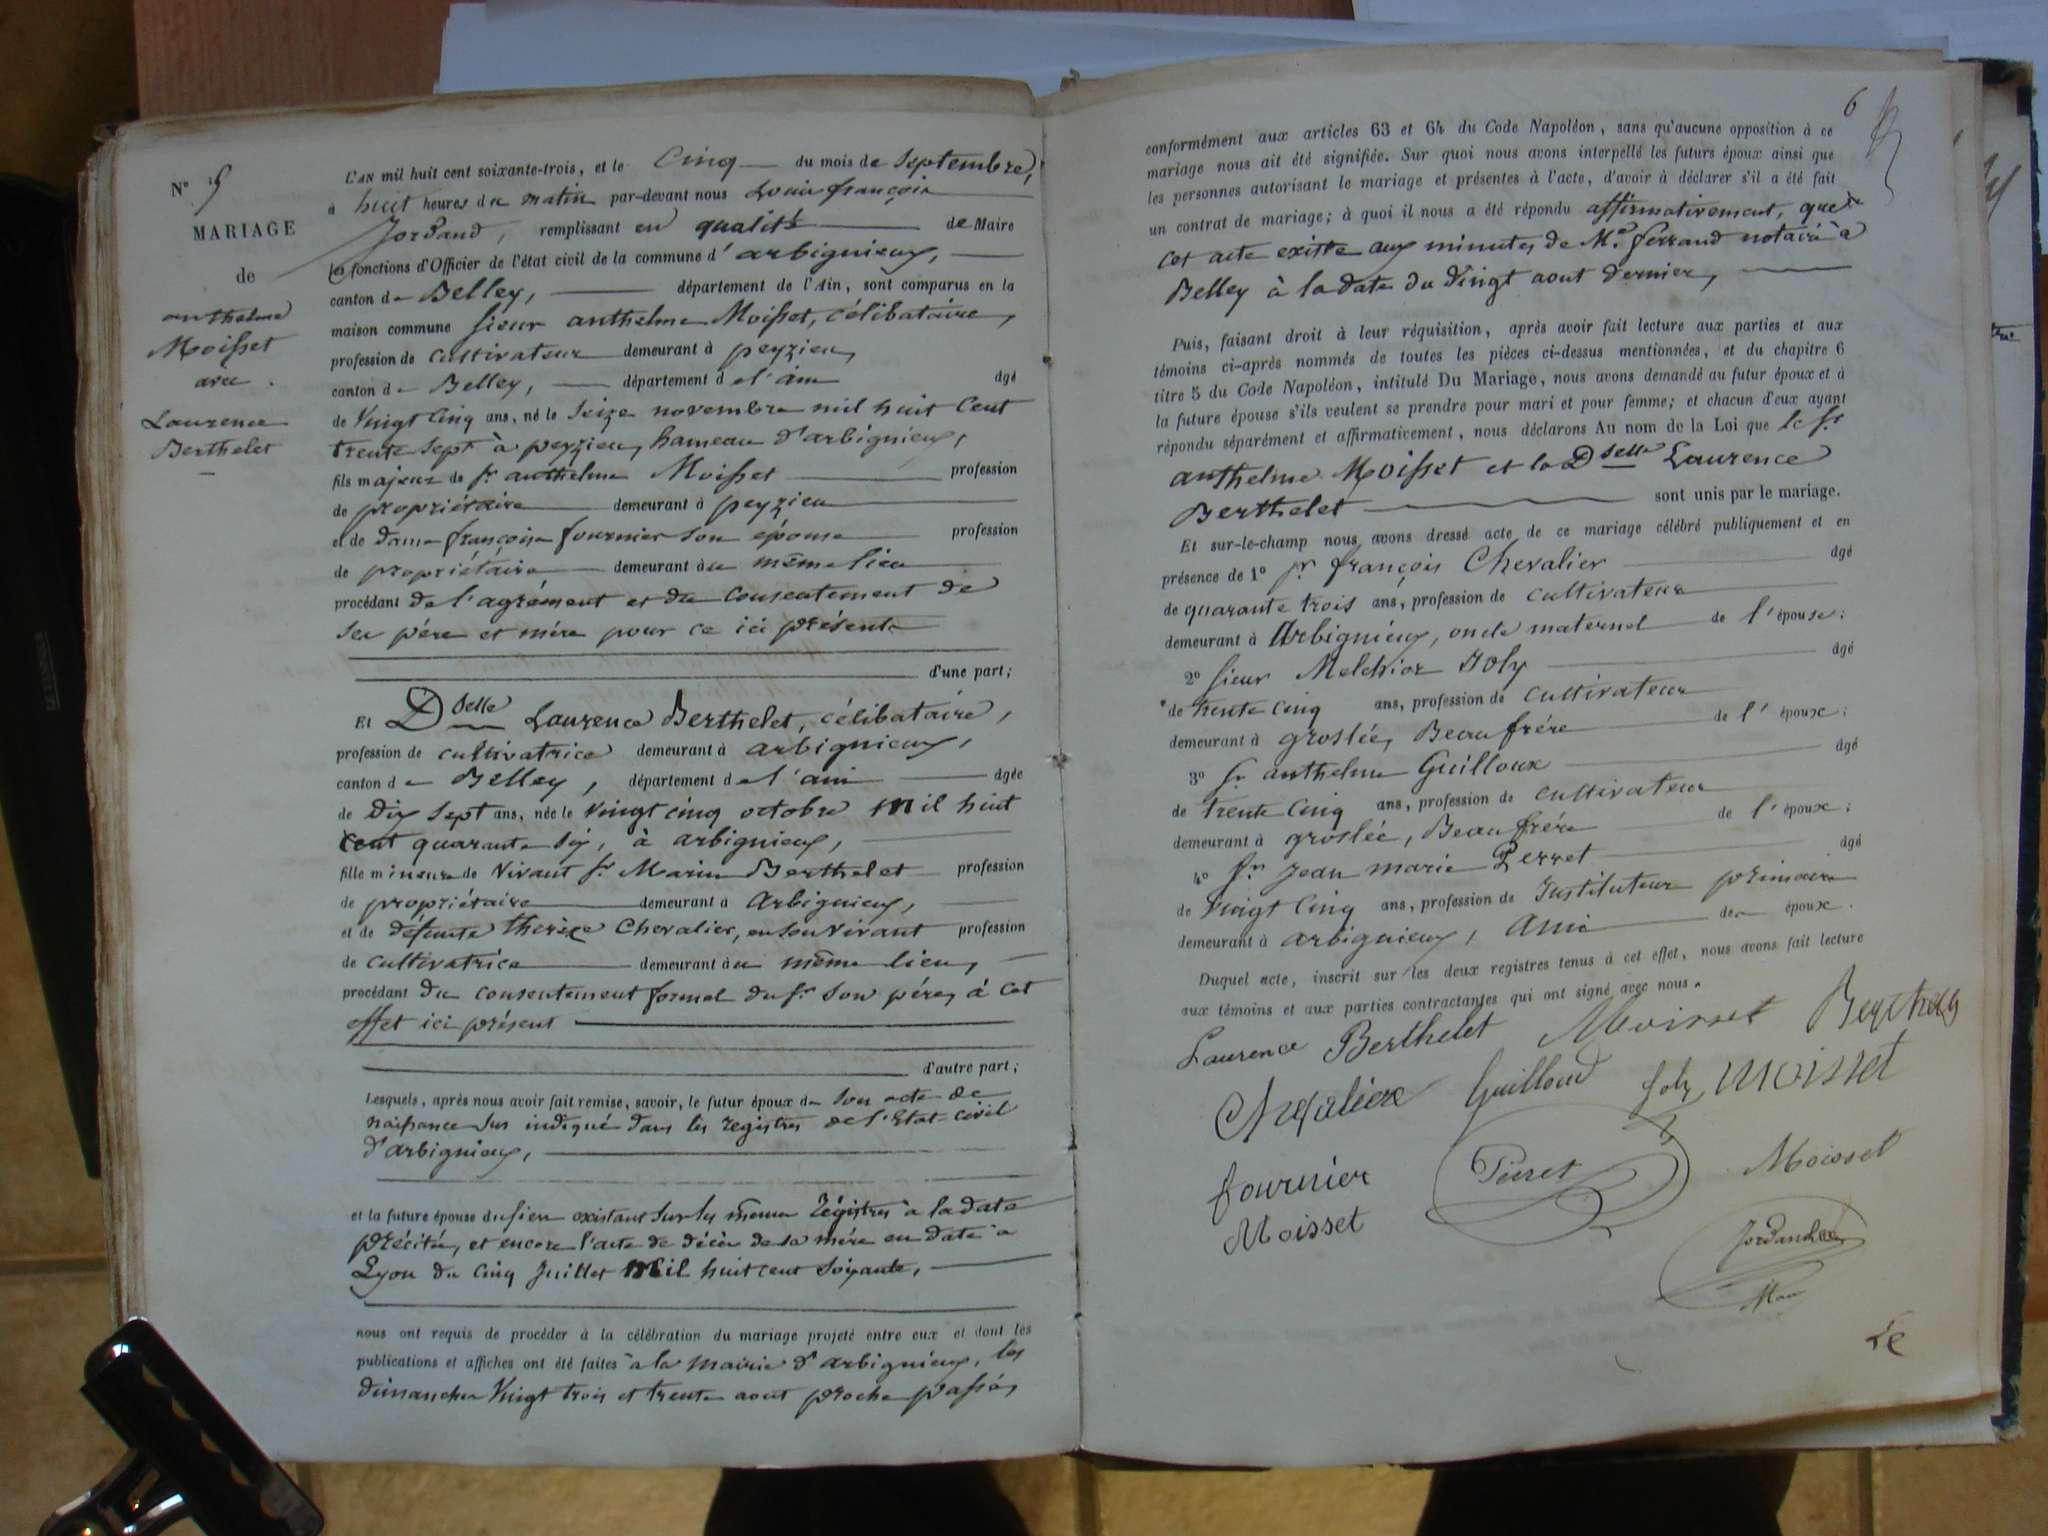 N° 5
MARIAGE
de
anthelme
Moisset
avec
Laurence
Berthelet
L'AN mil huit cent soixante-trois, et le Cinq du mois de Septembre,
à huit heures du matin par-devant nous Louis françois
Jordand, remplissant en qualité de Maire
les fonctions d'Officier de l'état civil de la commune d'arbignieux,
canton de Belley, département de l'Ain, sont comparus en la
maison commune Sieur anthelme Moisset, célibataire,
profession de cultivateur demeurant à peyzieu,
canton de Belley, département de l'ain âgé
de vingt cinq ans, né le Seize novembre mil huit Cent
trente sept à peyzieu, hameau d'arbignieux,
fils majeur de Sr anthelme Moisset profession
de propriétaire demeurant à peyzieu
et de dame françoise fournier son épouse profession
de propriétaire demeurant au même lieu
procédant de l'agrément et du consentement de
ses père et mère pour ce ici présents
d'une part;
Et Dselle Laurence Berthelet, célibataire,
profession de cultivatrice demeurant à arbignieux,
canton de Belley, département de l'ain âgée
de Dix sept ans, née le vingt cinq octobre mil huit
cent quarante six, à arbignieux,
fille mineure de vivant Sr Marin Berthelet profession
de propriétaire demeurant à Arbignieux,
et de défunte therèse Chevalier, en son vivant profession
de cultivatrice demeurant au même lieu,
procédant du consentement formel du Sr son père, à cet
effet ici présent
d'autre part;
Lesquels, après nous avoir fait remise, savoir, le futur époux de son acte de
naissance sus indiqué dans les registres de l'Etat-civil
d'arbignieux,
et la future épouse du sien existant sur les mêmes régistres à la date
précitée, et encore l'acte de décès de sa mère en date à
Lyon du cinq Juillet mil huit cent soixante,
nous ont requis de procéder à la célébration du mariage projeté entre eux et dont les
publications et affiches ont été faites à la mairie d'arbignieux, les
dimanches vingt trois et trente aout proche passés,
6
conformément aux articles 63 et 64 du Code Napoléon, sans qu'aucune opposition à ce
mariage nous ait été signifiée. Sur quoi nous avons interpellé les futurs époux ainsi que
les personnes autorisant le mariage et présentes à l'acte, d'avoir à déclarer s'il a été fait
un contrat de mariage; à quoi il nous a été répondu affirmativement, que
cet acte existe aux minutes de Me ferrand notaire à
Belley à la date du vingt aout dernier,
Puis, faisant droit à leur réquisition, après avoir fait lecture aux parties et aux
témoins ci-après nommés de toutes les pièces ci-dessus mentionnées, et du chapitre 6
titre 5 du Code Napoléon, intitulé Du Mariage, nous avons demandé au futur époux et à
la future épouse s'ils veulent se prendre pour mari et pour femme; et chacun d'eux ayant
répondu séparément et affirmativement, nous déclarons Au nom de la Loi que le Sr
anthelme Moisset et la Dselle Laurence
Berthelet sont unis par le mariage.
Et sur-le-champ nous avons dressé acte de ce mariage célébré publiquement et en
présence de 1° Sr françois Chevalier âgé
de quarante trois ans, profession de cultivateur
demeurant à Arbignieux, oncle maternel de l'épouse;
2° Sieur Melchior Joly âgé
de trente cinq ans, profession de cultivateur
demeurant à groslée, Beau frère de l'époux;
3° Sr anthelme Guilloux âgé
de trente cinq ans, profession de cultivateur
demeurant à groslée, Beau frère de l'époux;
4° Sr Jean marie Perret âgé
de vingt cinq ans, profession de Instituteur primaire
demeurant à arbignieux, Ami des époux.
Duquel acte, inscrit sur les deux registres tenus à cet effet, nous avons fait lecture
aux témoins et aux parties contractantes qui ont signé avec nous.
Laurence Berthelet Moisset
Chevalier Guilloud Joly Moisset
fournier Perret Moisset
Moisset